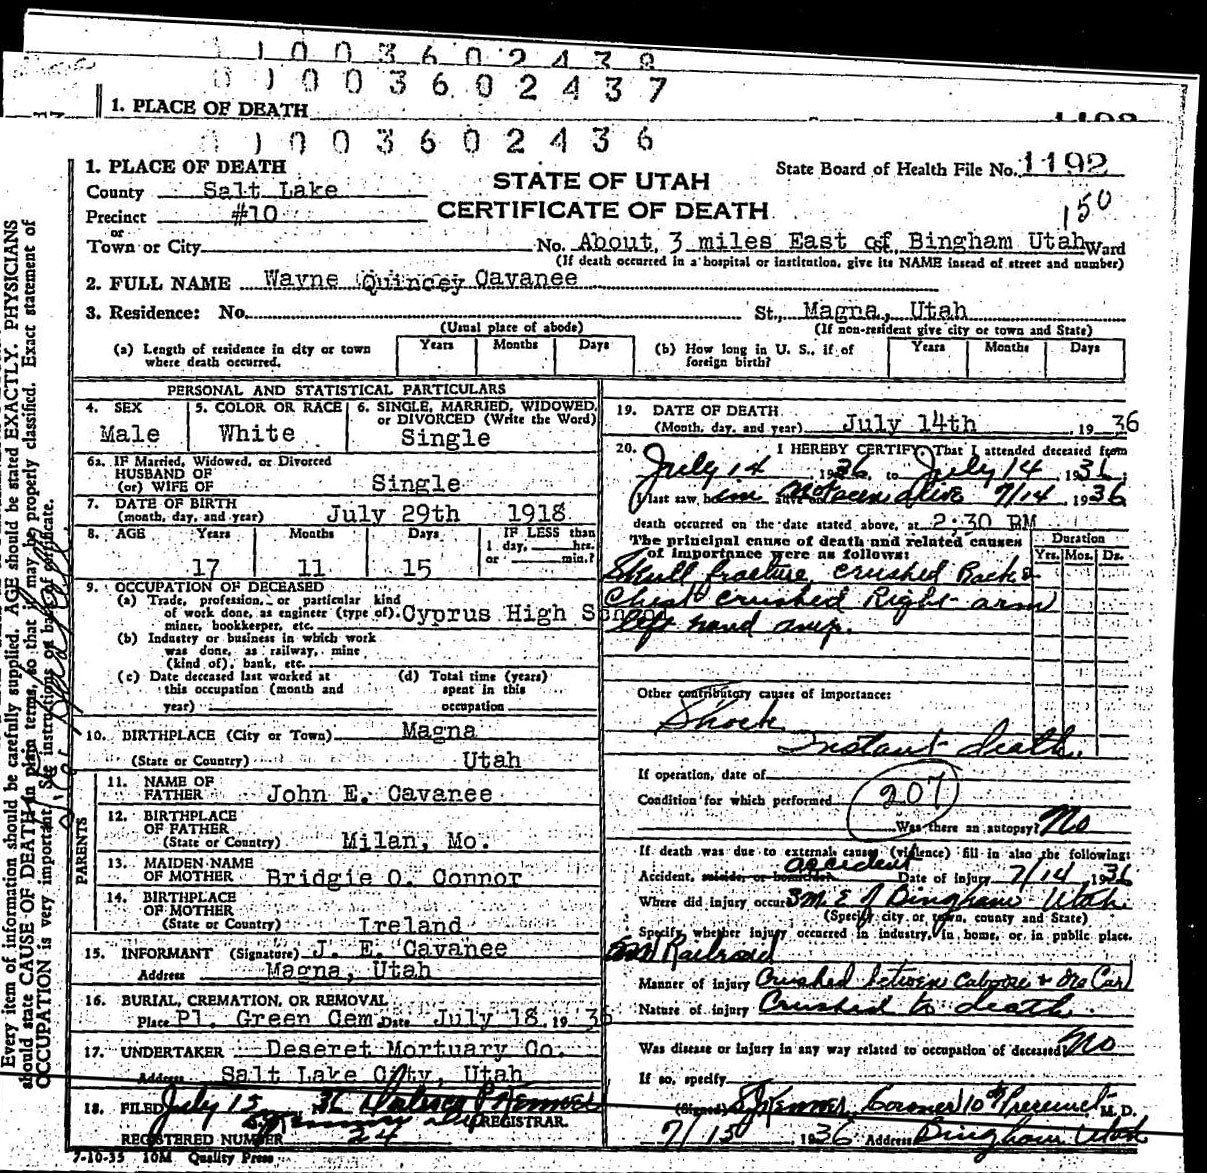 1 0 0 3 6 0 2 4 3 8
0 1 0 0 3 6 0 2 4 3 7
1. PLACE OF DEATH
0 1 0 0 3 6 0 2 4 3 6
1. PLACE OF DEATH
State Board of Health File No. 1192
STATE OF UTAH
County Salt Lake
150
Precinct #10
CERTIFICATE OF DEATH
or
Town or City No. About 3 miles East of Bingham Utah St. Ward
(If death occurred in a hospital or institution, give its NAME instead of street and number)
2. FULL NAME Wayne Quincey Cavanee
3. Residence: No. St., Magna, Utah
(Usual place of abode) (If non-resident give city or town and State)
(a) Length of residence in city or town where death occurred. Years Months Days
(b) How long in U. S., if of foreign birth? Years Months Days
PERSONAL AND STATISTICAL PARTICULARS
4. SEX Male
5. COLOR OR RACE White
6. SINGLE, MARRIED, WIDOWED, or DIVORCED (Write the Word) Single
6a. IF Married, Widowed, or Divorced
HUSBAND OF
(or) WIFE OF Single
7. DATE OF BIRTH
(month, day, and year) July 29th 1918
8. AGE Years Months Days IF LESS than
1 day, hrs.
or min.?
17 11 15
9. OCCUPATION OF DECEASED
(a) Trade, profession, or particular kind
of work done, as engineer (type of). Cyprus High School
miner, bookkeeper, etc.
(b) Industry or business in which work
was done, as railway, mine
(kind of), bank, etc.
(c) Date deceased last worked at
this occupation (month and
year)
(d) Total time (years)
spent in this
occupation
10. BIRTHPLACE (City or Town) Magna
(State or Country) Utah
PARENTS
11. NAME OF
FATHER John E. Cavanee
12. BIRTHPLACE
OF FATHER
(State or Country) Milan, Mo.
13. MAIDEN NAME
OF MOTHER Bridgie O. Connor
14. BIRTHPLACE
OF MOTHER
(State or Country) Ireland
15. INFORMANT (Signature) J. E. Cavanee
Address Magna, Utah
16. BURIAL, CREMATION, OR REMOVAL
Place Pl. Green Cem. Date July 18, 1936
17. UNDERTAKER Deseret Mortuary Co.
Address Salt Lake City, Utah
18. FILED July 15 36
REGISTRAR.
REGISTERED NUMBER 24
7-10-35 10M Quality Press
19. DATE OF DEATH
(Month, day, and year) July 14th, 1936
20. I HEREBY CERTIFY, That I attended deceased from
July 14 1936, to July 14 1936,
I last saw him alive 7/14 1936
death occurred on the date stated above, at 2:30 PM
The principal cause of death and related causes
of importance were as follows:
Duration
Yrs. Mos. Ds.
Skull fracture, crushed Back &
Chest crushed Right arm
left hand amp.
Other contributory causes of importance:
Shock
Instant death.
If operation, date of
207
Condition for which performed
Was there an autopsy? No
If death was due to external causes (violence) fill in also the following:
accident
Accident, suicide, or homicide? Date of injury 7/14 1936
Where did injury occur 3 M E of Bingham Utah
(Specify city or town, county and State)
Specify whether injury occurred in industry, in home, or in public place.
Railroad
Manner of injury Crushed between Caboose & Ore Car
Nature of injury Crushed to death.
Was disease or injury in any way related to occupation of deceased? No
If so, specify
(Signed) Coroner 10th Precinct M. D.
7/15 1936 Address Bingham Utah
Every item of information should be carefully supplied. AGE should be stated EXACTLY. PHYSICIANS
should state CAUSE OF DEATH in plain terms, so that it may be properly classified. Exact statement of
OCCUPATION is very important. See instructions on back of certificate.